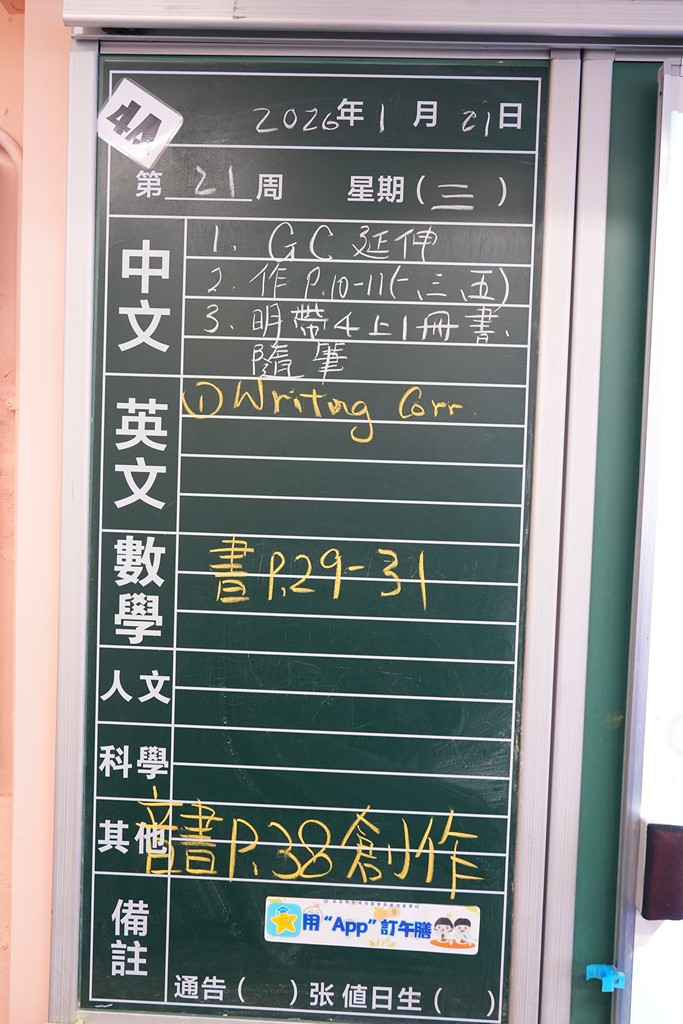 4A
2026年1月21日
第21周 星期(三)
中文
1. GC 延伸
2. 作 P.10-11(一、三、五)
3. 明帶4上1冊書、
隨筆
英文
① Writing Corr.
數學
書 P.29-31
人文
科學
其他
音書P.38創作
備註
用“App”訂午膳
通告( )张 值日生( )